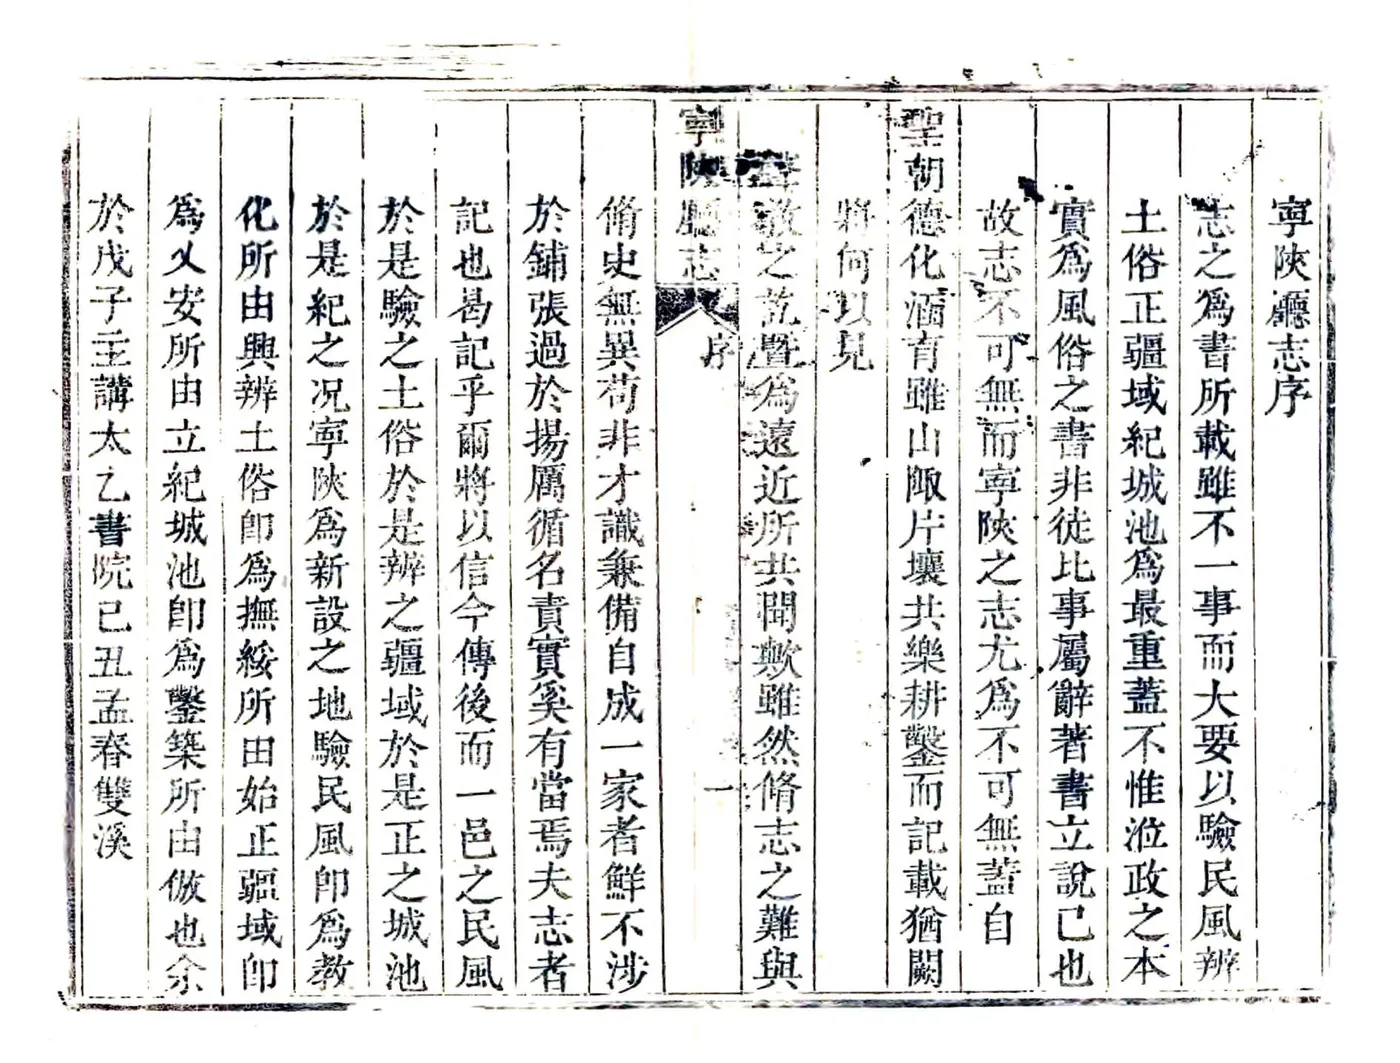 寧陝廳志序
志之爲書所載雖不一事而大要以驗民風辨
土俗正疆域紀城池爲最重蓋不惟涖政之本
實爲風俗之書非徒比事屬辭著書立說已也
故志不可無而寧陝之志尤爲不可無蓋自
聖朝德化涵育雖山陬片壤共樂耕鑿而記載猶闕
將何以見
聲敎之訖暨爲遠近所共聞歟雖然脩志之難與
寧陝廳志
序
一
脩史無異苟非才識兼備自成一家者鮮不涉
於鋪張過於揚厲循名責實奚有當焉夫志者
記也曷記乎爾將以信今傳後而一邑之民風
於是驗之土俗於是辨之疆域於是正之城池
於是紀之况寧陝爲新設之地驗民風卽爲教
化所由興辨土俗卽爲撫綏所由始正疆域卽
爲乂安所由立紀城池卽爲鑿築所由倣也余
於戊子主講太乙書院已丑孟春雙溪